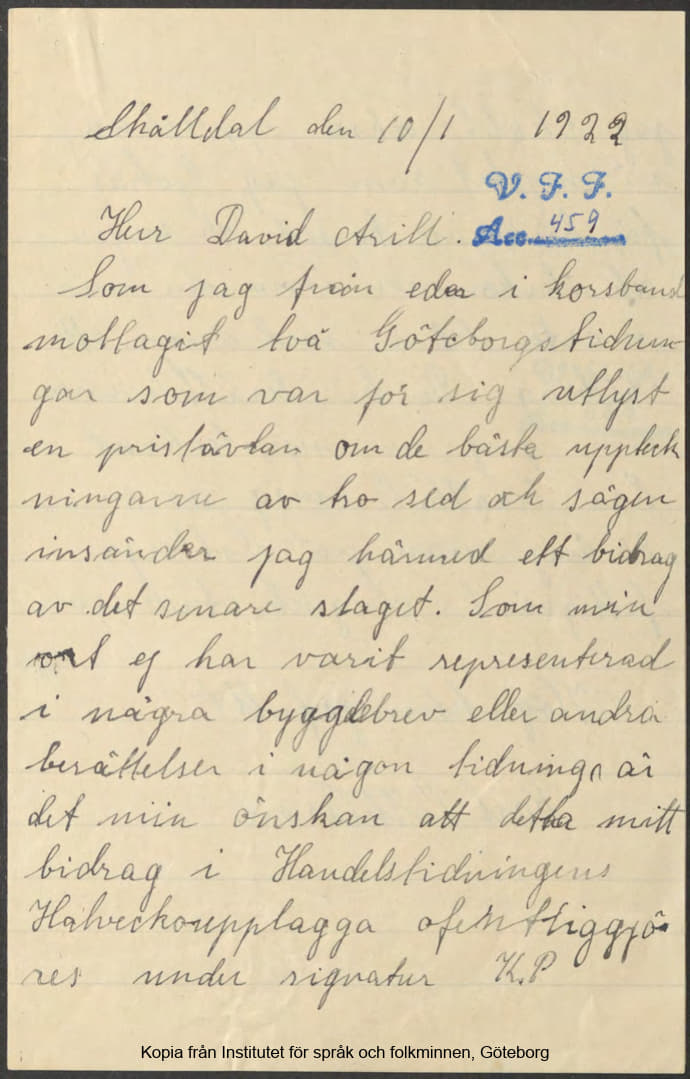 Skålldal den 10/1 1922
V. F. F.
Acc. 459
Herr David Arill.
Som jag från eder i korsband
mottagit två Göteborgstidnin-
gar som var för sig utlyst
en pristävlan om de bästa uppteck
ningarne av tro sed och sägen
insänder jag härmed ett bidrag
av det senare slaget. Som min
ort ej har varit representerad
i några byggdebrev eller andra
berättelser i någon tidning, är
det min önskan att detta mitt
bidrag i Handelstidningens
Halveckoupplagga ofentliggjö-
res under signatur K.P
Kopia från Institutet för språk och folkminnen, Göteborg